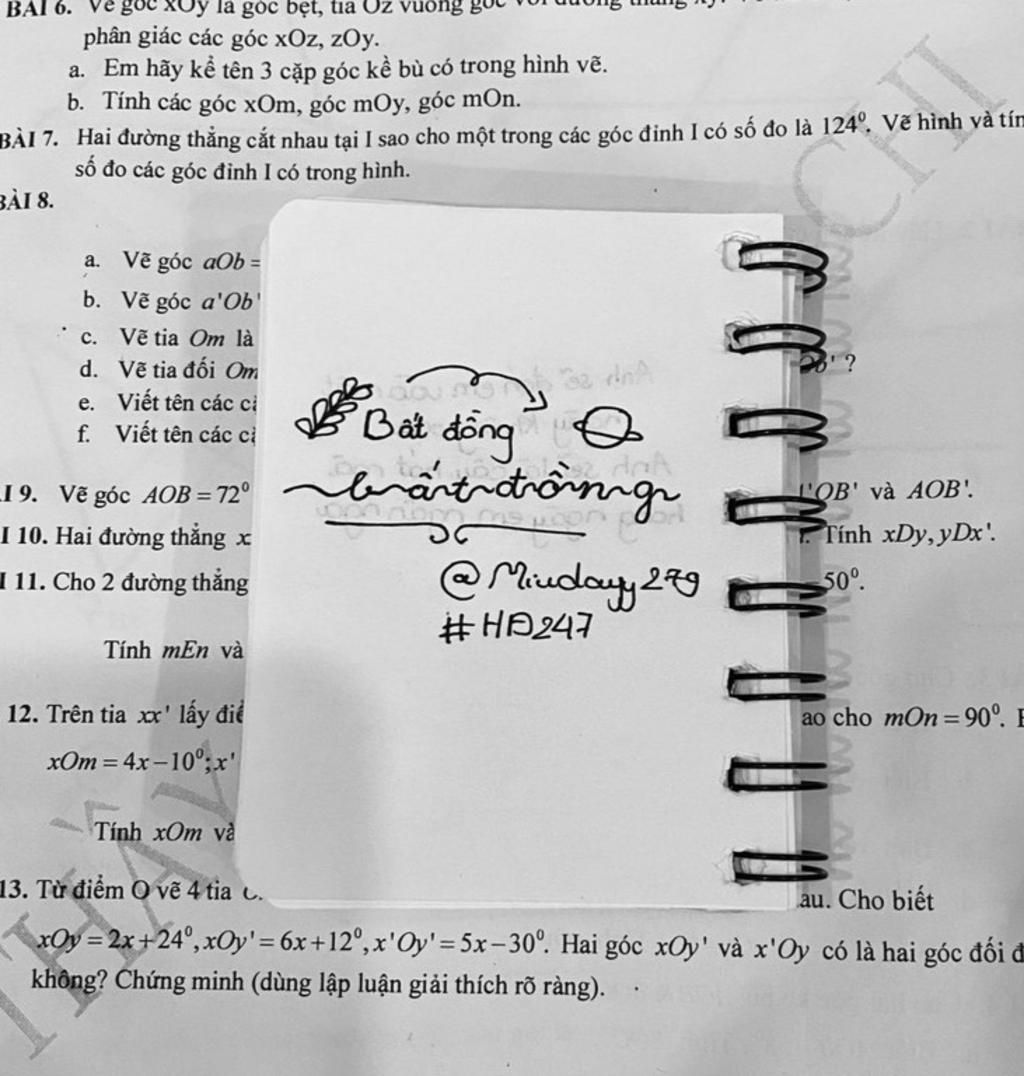 BÀI 6. Vẽ góc xOy là góc bẹt, tia Oz vuông góc
phân giác các góc xOz, zOy.
a. Em hãy kể tên 3 cặp góc kề bù có trong hình vẽ.
b. Tính các góc xOm, góc mOy, góc mOn.
BÀI 7. Hai đường thẳng cắt nhau tại I sao cho một trong các góc đỉnh I có số đo là 124⁰. Vẽ hình và
số đo các góc đỉnh I có trong hình.
BÀI 8.
a. Vẽ góc aOb =
b. Vẽ góc a'Ob'
c. Vẽ tia Om là
d. Vẽ tia đối Om ' ?
e. Viết tên các
f. Viết tên các
I 9. Vẽ góc AOB = 72⁰ 'OB' và AOB'.
I 10. Hai đường thẳng x Tính xDy, yDx'.
I 11. Cho 2 đường thẳng 50⁰.
Tính mEn và
12. Trên tia xx' lấy ao cho mOn = 90⁰.
xOm = 4x − 10⁰; x'
Tính xOm và
13. Từ điểm O vẽ 4 tia au. Cho biết
xOy = 2x + 24⁰, xOy' = 6x + 12⁰, x'Oy' = 5x − 30⁰. Hai góc xOy' và x'Oy có là hai góc đối
không? Chứng minh (dùng lập luận giải thích rõ ràng).
Bất đồng
bất đồng
@Miudayy279
#HĐ247
THẦY
CHI